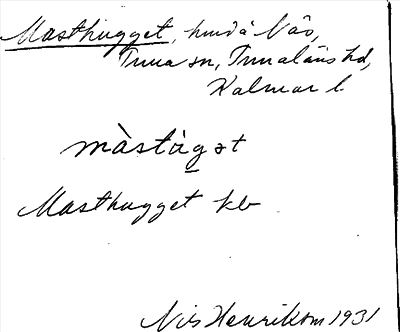 Masthugget, hmd å Näs,
Tuna sn, Tunaläns hd,
Kalmar l
màstùgət
Masthugget kb
Nils Henrikson 1931